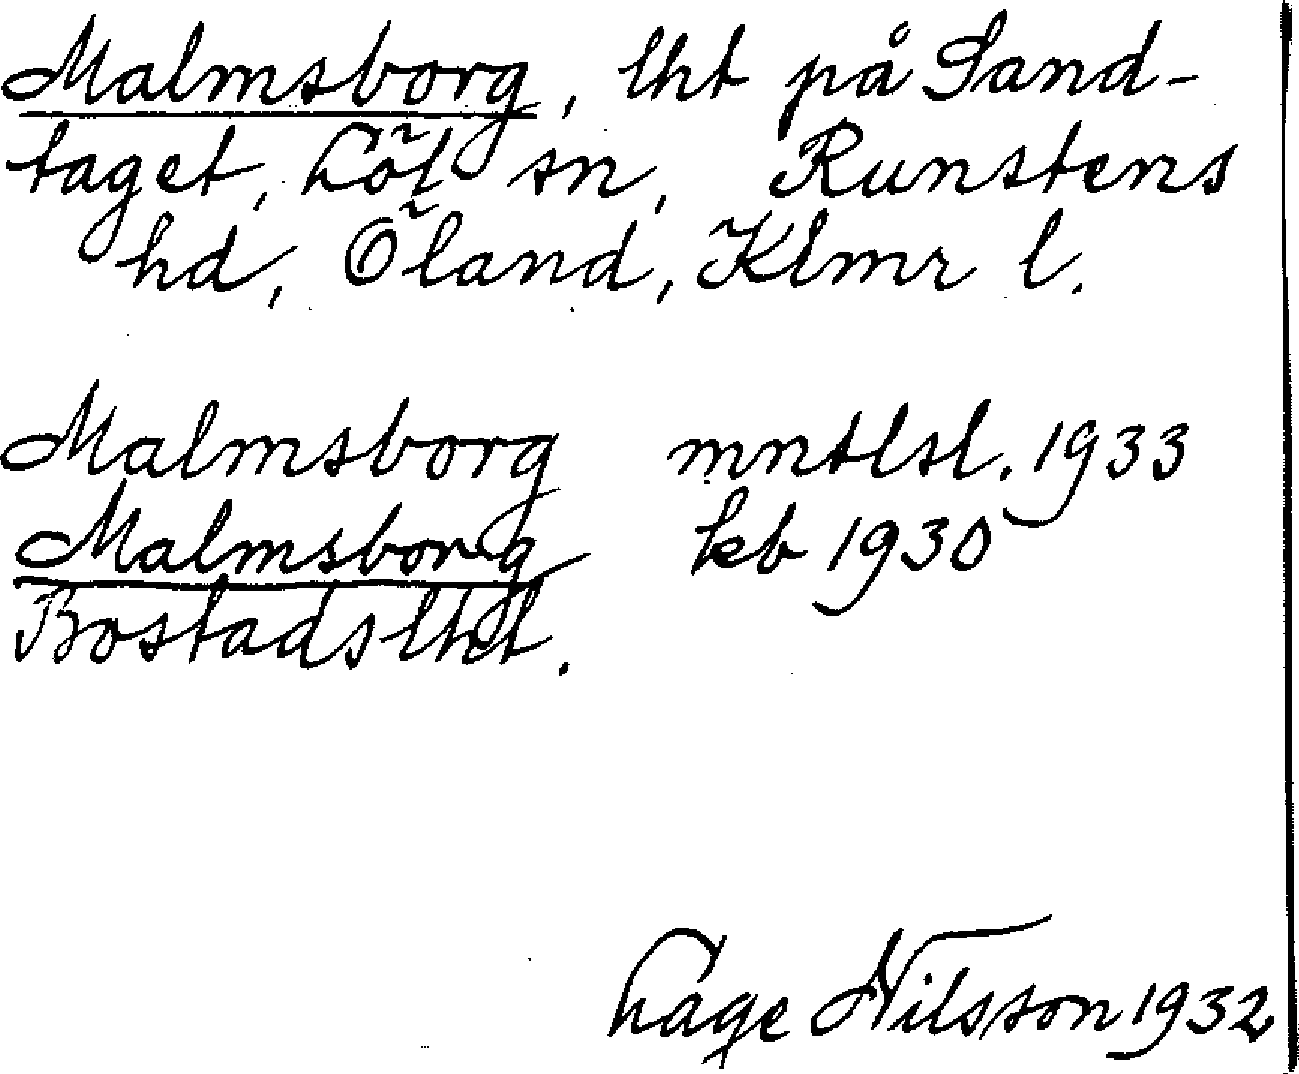 Malmsborg, lht på Sand-
taget, Löt sn, Runstens
hd, Öland, Klmr l.
Malmsborg mntlsl. 1933
Malmsborg kb 1930
Bostadslht.
Lage Nilsson 1932